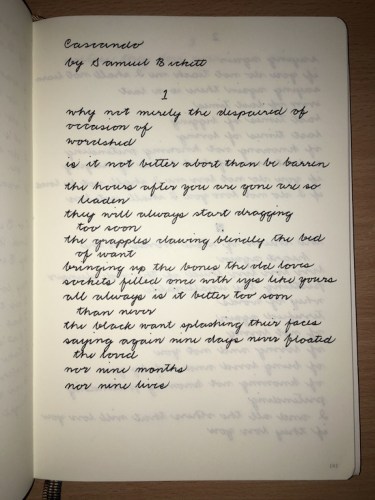 Cascando
by Samuel Beckett
1
why not merely the despaired of
occasion of
wordshed
is it not better abort than be barren
the hours after you are gone are so
leaden
they will always start dragging
too soon
the grapples clawing blindly the bed
of want
bringing up the bones the old loves
sockets filled once with eyes like yours
all always is it better too soon
than never
the black want splashing their faces
saying again nine days never floated
the loved
nor nine months
nor nine lives